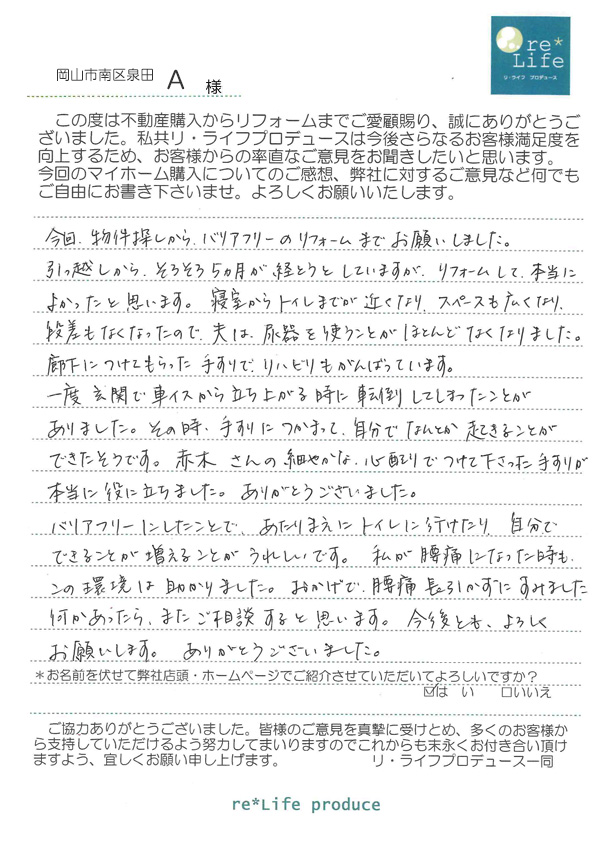 re*
Life
リ・ライフ プロデュース
岡山市南区泉田 A 様
この度は不動産購入からリフォームまでご愛顧賜り、誠にありがとうご
ざいました。私共リ・ライフプロデュースは今後さらなるお客様満足度を
向上するため、お客様からの率直なご意見をお聞きしたいと思います。
今回のマイホーム購入についてのご感想、弊社に対するご意見など何でも
ご自由にお書き下さいませ。よろしくお願いいたします。
今回、物件探しから、バリアフリーのリフォームまでお願いしました。
引っ越しから、そろそろ5ヵ月が経とうとしていますが、リフォームして、本当に
よかったと思います。寝室からトイレまでが近くなり、スペースも広くなり、
段差もなくなったので、夫は、尿器を使うことがほとんどなくなりました。
廊下につけてもらった手すりで、リハビリもがんばっています。
一度玄関で車イスから立ち上がる時に転倒してしまったことが
ありました。その時、手すりにつかまって、自分でなんとか起きることが
できたそうです。赤木さんの細やかな、心配りでつけて下さった手すりが
本当に役に立ちました。ありがとうございました。
バリアフリーにしたことで、あたりまえにトイレに行けたり、自分で
できることが増えることがうれしいです。私が腰痛になった時も、
この環境は助かりました。おかげで、腰痛長引かずにすみました
何かあったら、またご相談すると思います。今後とも、よろしく
お願いします。ありがとうございました。
*お名前を伏せて弊社店頭・ホームページでご紹介させていただいてよろしいですか?
☑は い ☐いいえ
ご協力ありがとうございました。皆様のご意見を真摯に受けとめ、多くのお客様か
ら支持していただけるよう努力してまいりますのでこれからも末永くお付き合い頂け
ますよう、宜しくお願い申し上げます。 リ・ライフプロデュース一同
re*Life produce